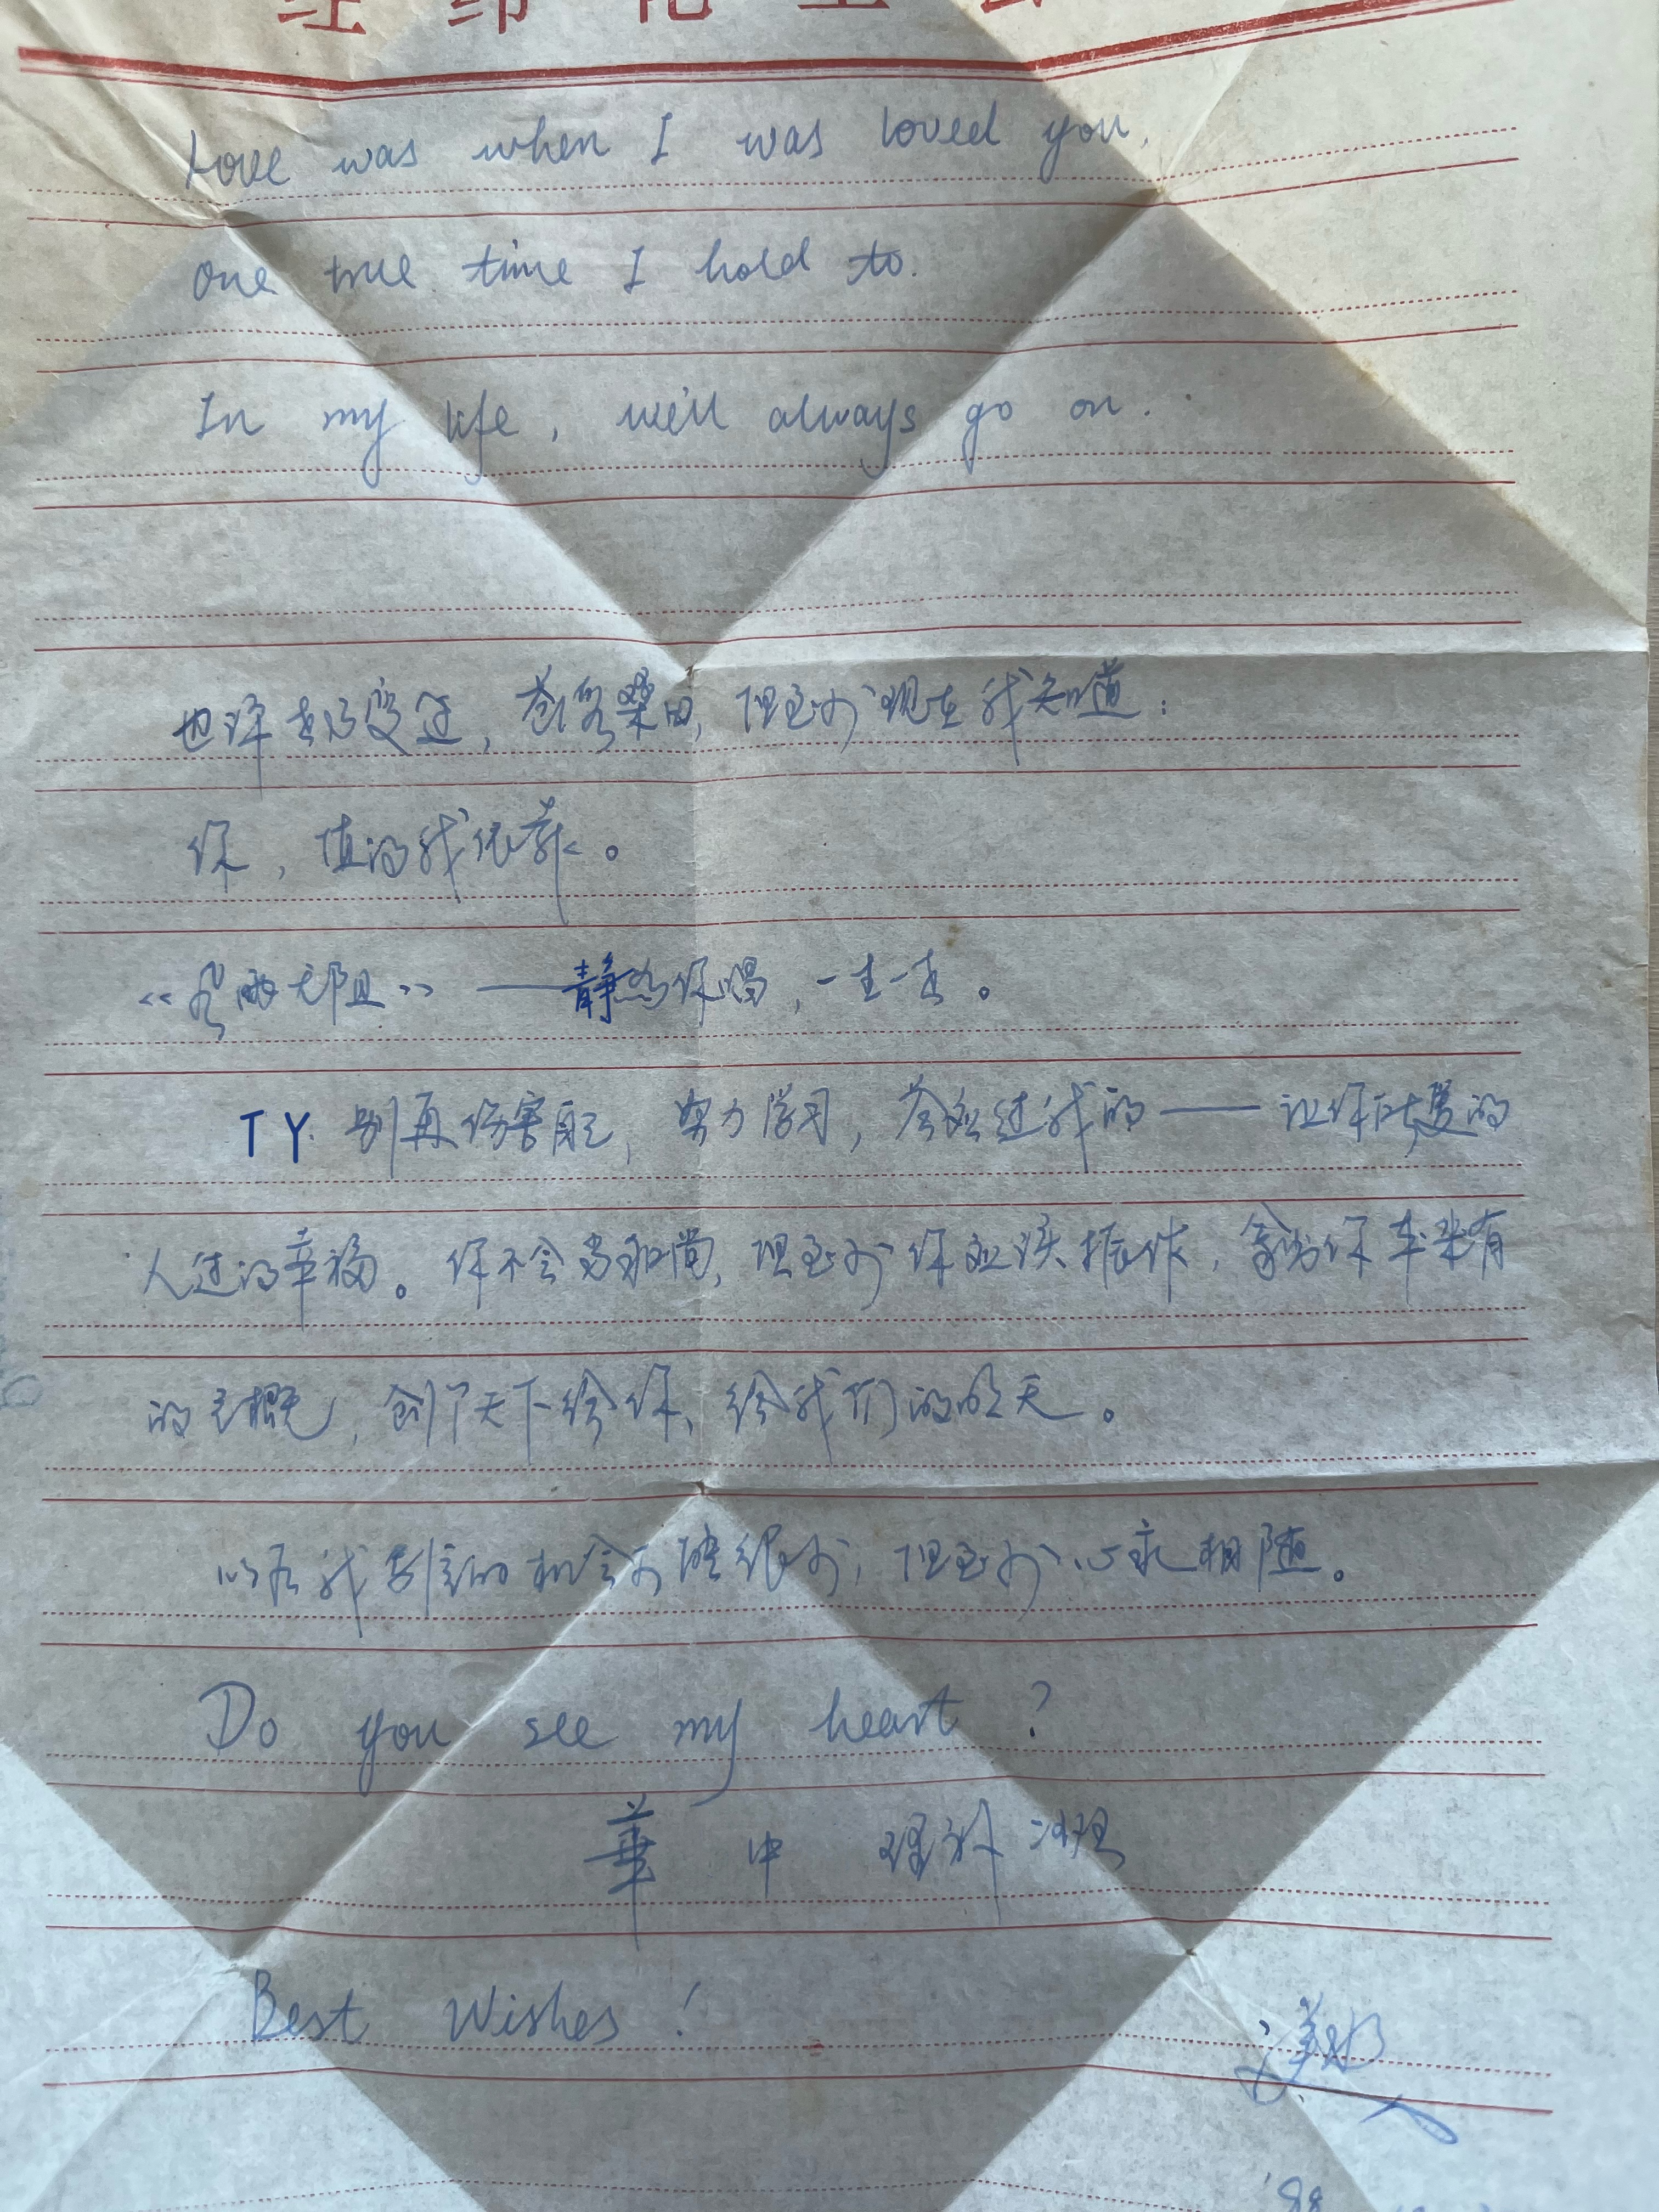 经纬化工公
Love was when I was loved you,
one true time I hold to.
In my life, we'll always go on..
也许世记变迁, 苍海桑田, 但至少现在我知道:
你, 值的我依靠。
《风雨无阻》——静为你唱, 一生一世。
TY. 别再伤害自己, 努力学习, 答应过我的——让你所爱的
人过的幸福。你不会当和尚, 但至少你应该振作, 拿出你本来有
的气概, 创个天下给你、给我们的明天。
以后我写信的机会可能很少, 但至少心永相随。
Do you see my heart?
華 中 理科
Best Wishes!
'98